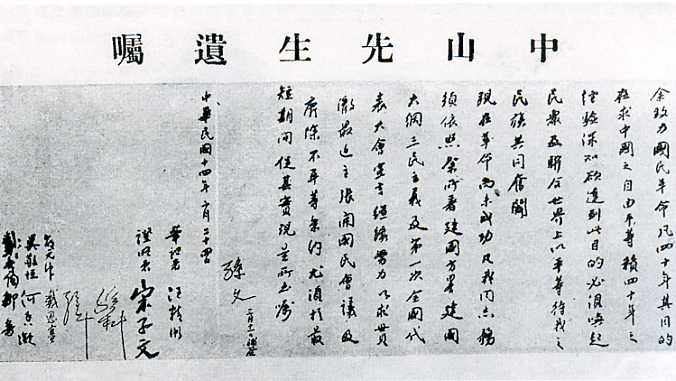 中山先生遺囑
余致力國民革命凡四十年其目的
在求中國之自由平等積四十年之
經驗深知欲達到此目的必須喚起
民眾及聯合世界上以平等待我之
民族共同奮鬭
現在革命尚未成功凡我同志務
須依照余所著建國方畧建國
大綱三民主義及第一次全國代
表大會宣言繼續努力以求貫
澈最近主張開國民會議及
廢除不平等條約尤須於最
短期間促其實現是所至囑
孫文 三月十一日補簽
中華民國十四年二月二十四日
筆記者 汪精衛
證明者 宋子文
孫科
戴恩賽
吳敬恆 何香凝